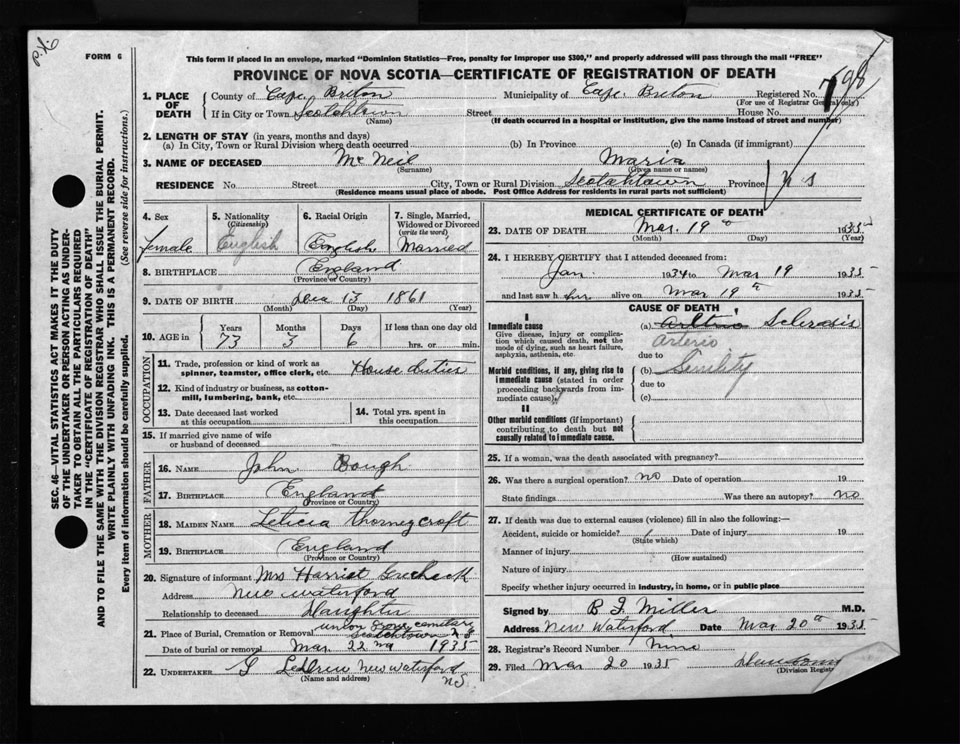 P.X.
FORM 6
This form if placed in an envelope, marked "Dominion Statistics—Free, penalty for improper use $300," and properly addressed will pass through the mail "FREE"
PROVINCE OF NOVA SCOTIA—CERTIFICATE OF REGISTRATION OF DEATH
SEC. 46—VITAL STATISTICS ACT MAKES IT THE DUTY
OF THE UNDERTAKER OR PERSON ACTING AS UNDER-
TAKER TO OBTAIN ALL THE PARTICULARS REQUIRED
IN THE "CERTIFICATE OF REGISTRATION OF DEATH"
AND TO FILE THE SAME WITH THE DIVISION REGISTRAR WHO SHALL ISSUE THE BURIAL PERMIT.
WRITE PLAINLY WITH UNFADING INK. THIS IS A PERMANENT RECORD.
Every item of information should be carefully supplied. (See reverse side for instructions.)
1. PLACE OF DEATH County of Cape Breton Municipality of Cape Breton Registered No.
(For use of Registrar General only)
If in City or Town Scotchtown Street House No.
(Name) (If death occurred in a hospital or institution, give the name instead of street and number)
2. LENGTH OF STAY (in years, months and days)
(a) In City, Town or Rural Division where death occurred (b) In Province (c) In Canada (if immigrant)
3. NAME OF DECEASED McNeil Maria
(Surname) (Given name or names)
RESIDENCE No. Street City, Town or Rural Division Scotchtown Province N S
(Residence means usual place of abode. Post Office Address for residents in rural parts not sufficient)
4. Sex female
5. Nationality (Citizenship) English
6. Racial Origin English
7. Single, Married, Widowed or Divorced (write the word) Married
8. BIRTHPLACE England
(Province or Country)
9. DATE OF BIRTH Dec 13 1861
(Month) (Day) (Year)
10. AGE in Years Months Days If less than one day old
73 3 6 hrs. or min.
OCCUPATION
11. Trade, profession or kind of work as spinner, teamster, office clerk, etc. House Duties
12. Kind of industry or business, as cotton-mill, lumbering, bank, etc.
13. Date deceased last worked at this occupation
14. Total yrs. spent in this occupation
15. If married give name of wife or husband of deceased
FATHER
16. NAME John Bough
17. BIRTHPLACE England
(Province or Country)
MOTHER
18. MAIDEN NAME Leticia Thorneycroft
19. BIRTHPLACE England
(Province or Country)
20. Signature of informant Mrs Harriet
Address New Waterford
Relationship to deceased Daughter
21. Place of Burial, Cremation or Removal union grove cemetary
Scotchtown N S
Date of burial or removal Mar 22 nd 1935
22. UNDERTAKER New Waterford
(Name and address) N S
MEDICAL CERTIFICATE OF DEATH
23. DATE OF DEATH Mar. 19 th 1935
(Month) (Day) (Year)
24. I HEREBY CERTIFY that I attended deceased from:
Jan. 1934 to Mar 19 1935
and last saw her alive on Mar 19 th 1935
CAUSE OF DEATH
I
Immediate cause
Give disease, injury or complication which caused death, not the mode of dying, such as heart failure, asphyxia, asthenia, etc
(a) Sclerosis
Arterio
due to
Morbid conditions, if any, giving rise to immediate cause (stated in order proceeding backwards from immediate cause)
(b) Senility
due to
(c)
II
Other morbid conditions (if important) contributing to death but not causally related to immediate cause.
25. If a woman, was the death associated with pregnancy?
26. Was there a surgical operation? no Date of operation 19
State findings Was there an autopsy? no
27. If death was due to external causes (violence) fill in also the following:—
Accident, suicide or homicide? Date of injury 19
(State which)
Manner of injury
(How sustained)
Nature of injury
Specify whether injury occurred in industry, in home, or in public place
Signed by B F Miller M.D.
Address New Waterford Date Mar. 20 th 1935
28. Registrar's Record Number Nine
29. Filed Mar 20 1935
(Division Registrar)